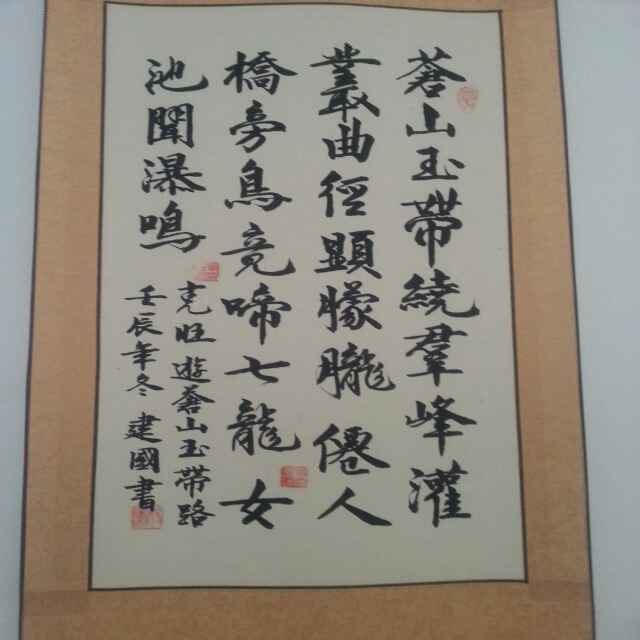 蒼山玉帶繞羣峰灌
叢曲徑顯朦朧僊人
橋旁鳥竞啼七龍女
池聞瀑鳴
克旺遊蒼山玉带路
壬辰年冬建國書